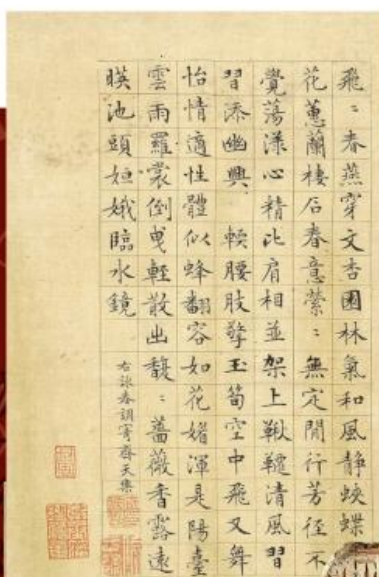 飛〻春燕穿文杏園林氣和風靜蛺蝶
花蕙蘭棲后春意縈〻無定閒行芳徑不
覺蕩漾心精比肩相並架上鞦韆清風習
習添幽興 輭腰肢擎玉筍空中飛又舞
怡情適性體似蜂翻容如花媚渾是陽臺
雲雨羅裳倒曳輕散出馥〻薔薇香露遠
暎池頭姮娥臨水鏡
右詠春調寄齊天樂